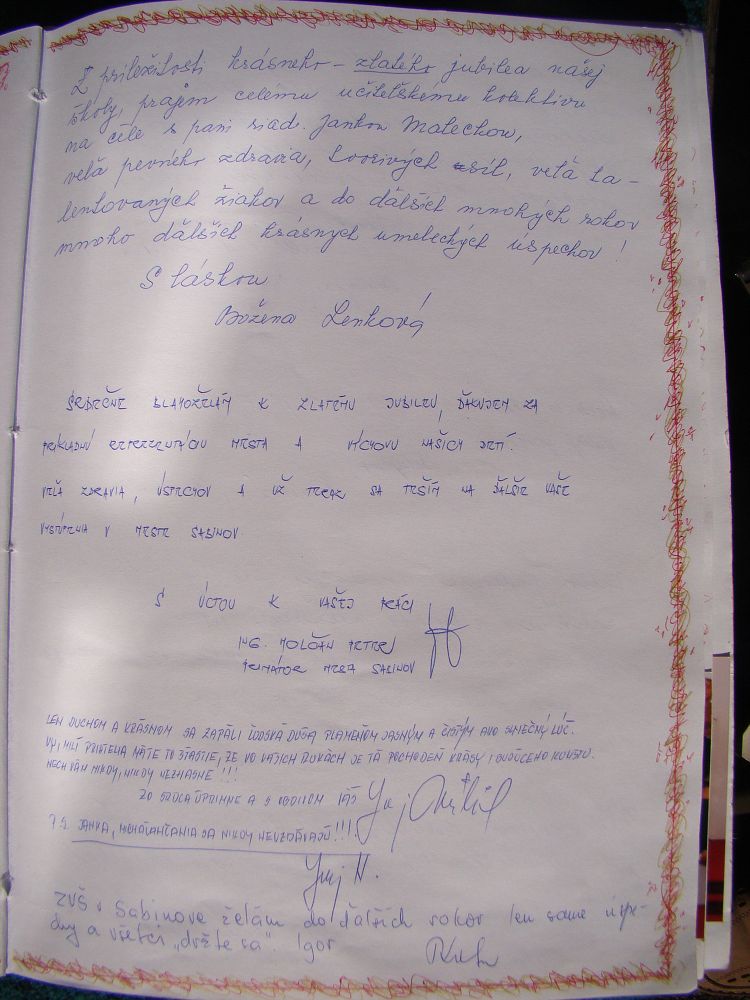 Z príležitosti krásneho - zlatého jubilea našej
školy, prajem celému učiteľskému kolektívu
na čele s pani riad. Jankou Matechou,
veľa pevného zdravia, tvorivých síl, veľa ta-
lentovaných žiakov a do ďalších mnohých rokov
mnoho ďalších krásnych umeleckých úspechov!
S láskou
Božena Lenková
SRDEČNE BLAHOŽELÁM K ZLATÉMU JUBILEU, ĎAKUJEM ZA
PRÍKLADNÚ REPREZENTÁCIU MESTA A VÝCHOVU NAŠICH DETÍ.
VEĽA ZDRAVIA, ÚSPECHOV A UŽ TERAZ SA TEŠÍM NA ĎALŠIE VAŠE
VYSTÚPENIA V MESTE SABINOV
S ÚCTOU K VAŠEJ PRÁCI
ING. MOLČAN PETER
PRIMÁTOR MESTA SABINOV
LEN DUCHOM A KRÁSNOM SA ZAPÁLI ĽUDSKÁ DUŠA PLAMEŇOM JASNÝM A ČISTÝM AKO SLNEČNÝ LÚČ.
VY, MILÍ PRIATELIA MÁTE TO ŠŤASTIE, ŽE VO VAŠICH RUKÁCH JE TÁ POCHODEŇ KRÁSY I DUŠUCEHO KUMŠTU.
NECH VÁM NIKDY, NIKDY NEZHASNE!!!
ZO SRDCA ÚPRIMNE A S OBDIVOM VÁŠ Juraj
P.S. JANKA, MICHAĽANČANIA SA NIKDY NEVZDÁVAJÚ!!!
Juraj N.
ZUŠ v Sabinove želám do ďalších rokov len samé úspe-
chy a všetci "držte sa". Igor